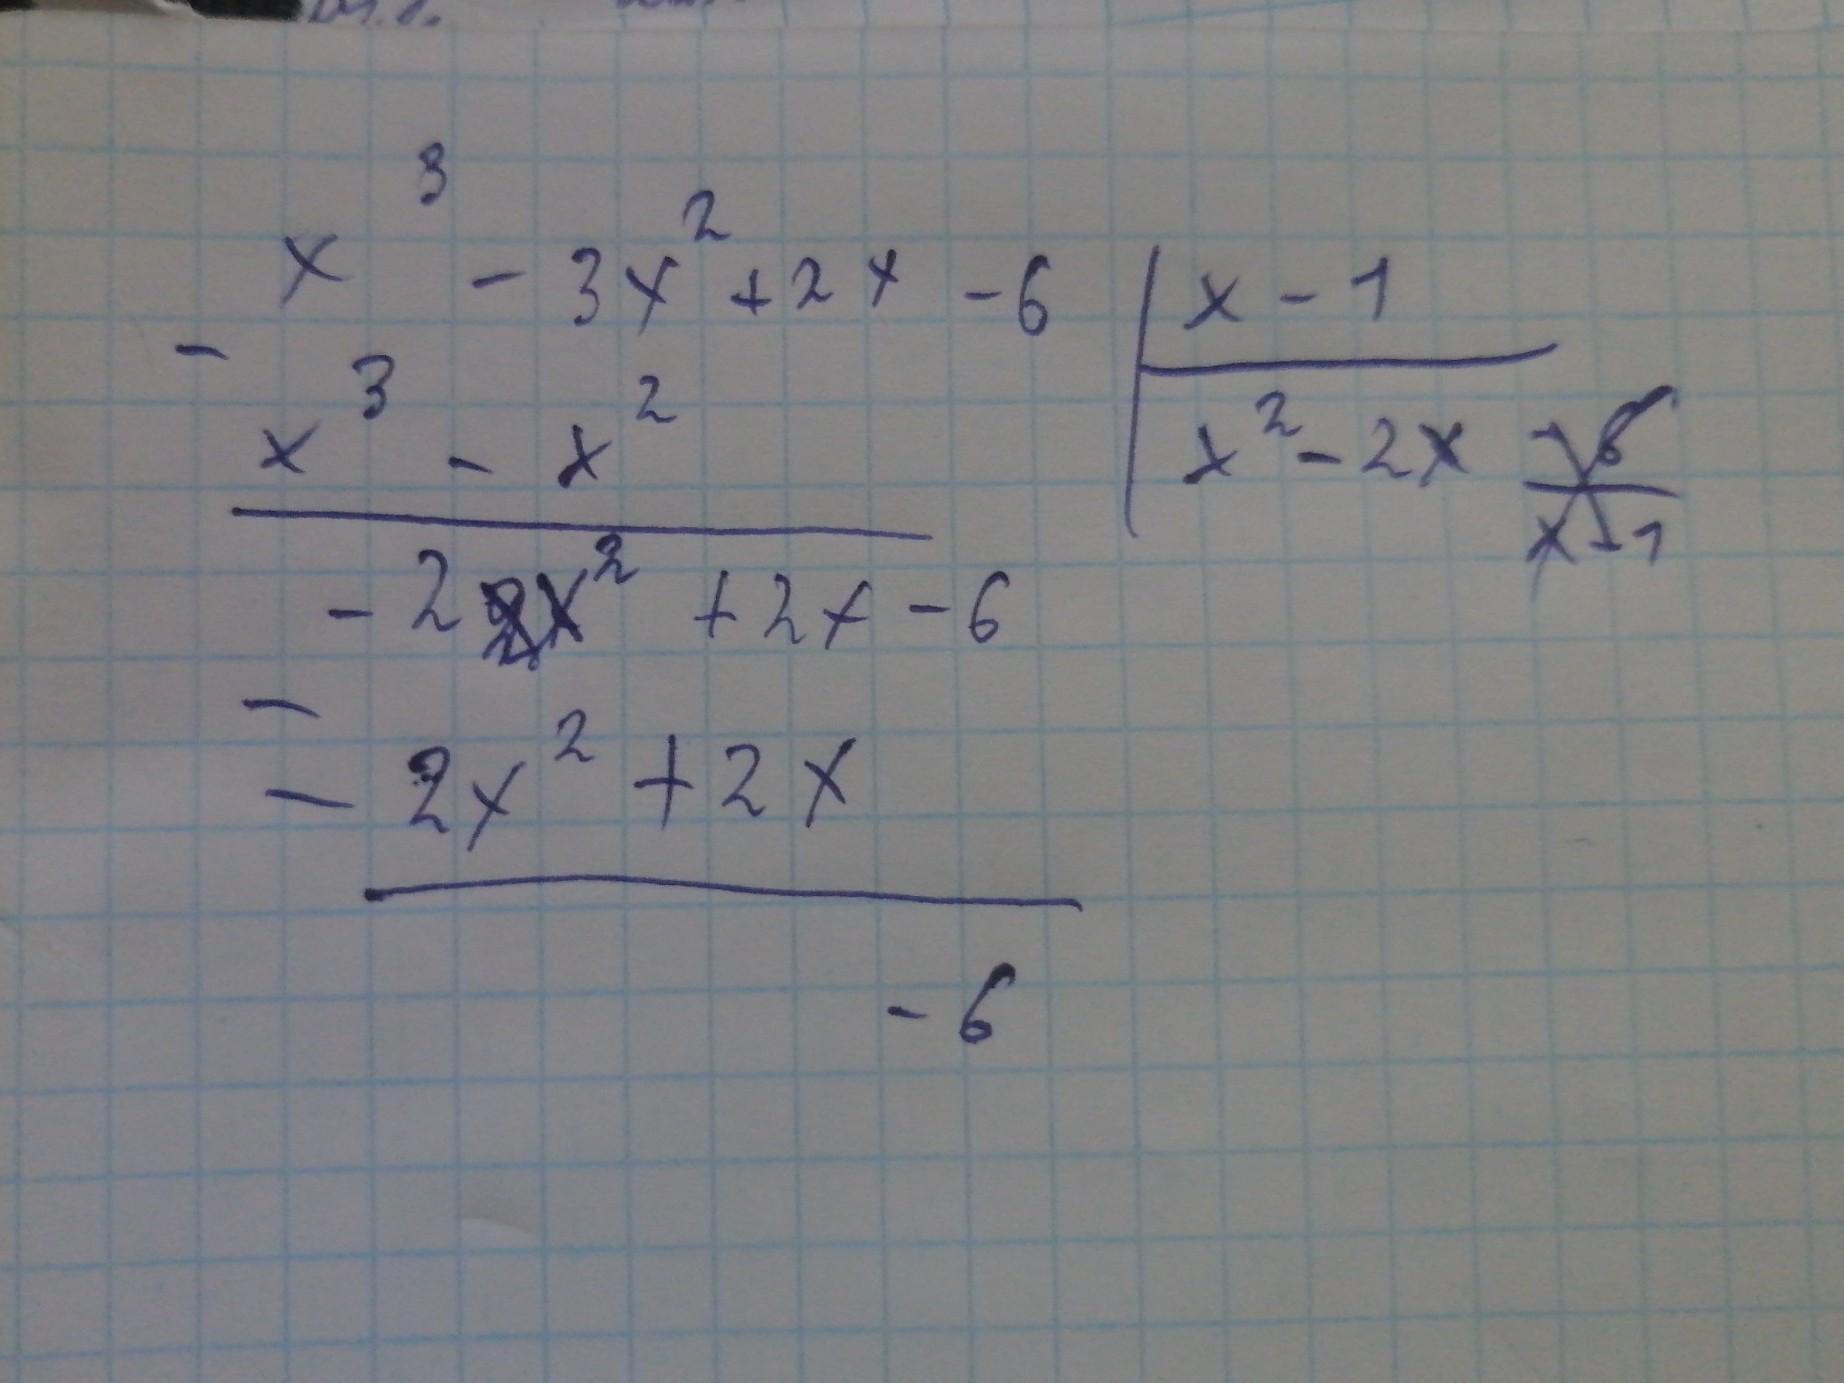 x³ - 3x² + 2x - 6 | x - 1
-
x³ - x²
x² - 2x
- 2x² + 2x - 6
-
- 2x² + 2x
- 6